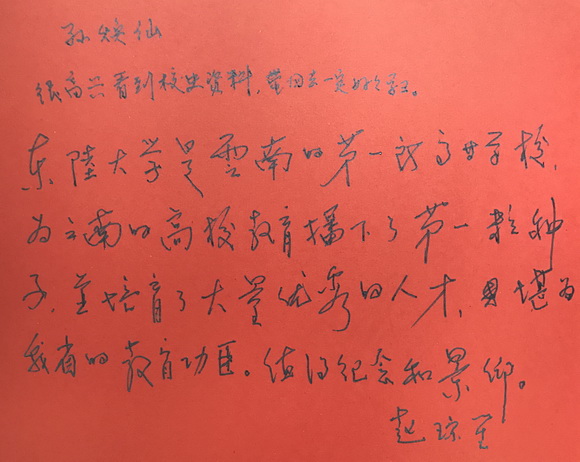 孙焕仙
很高兴看到校史资料，带回去一定好好学习。
东陸大学是雲南的第一所高等学校，
为云南的高校教育播下了第一颗种
子，并培育了大量优秀的人才，堪为
我省的教育功臣。值得纪念和景仰。
赵琮